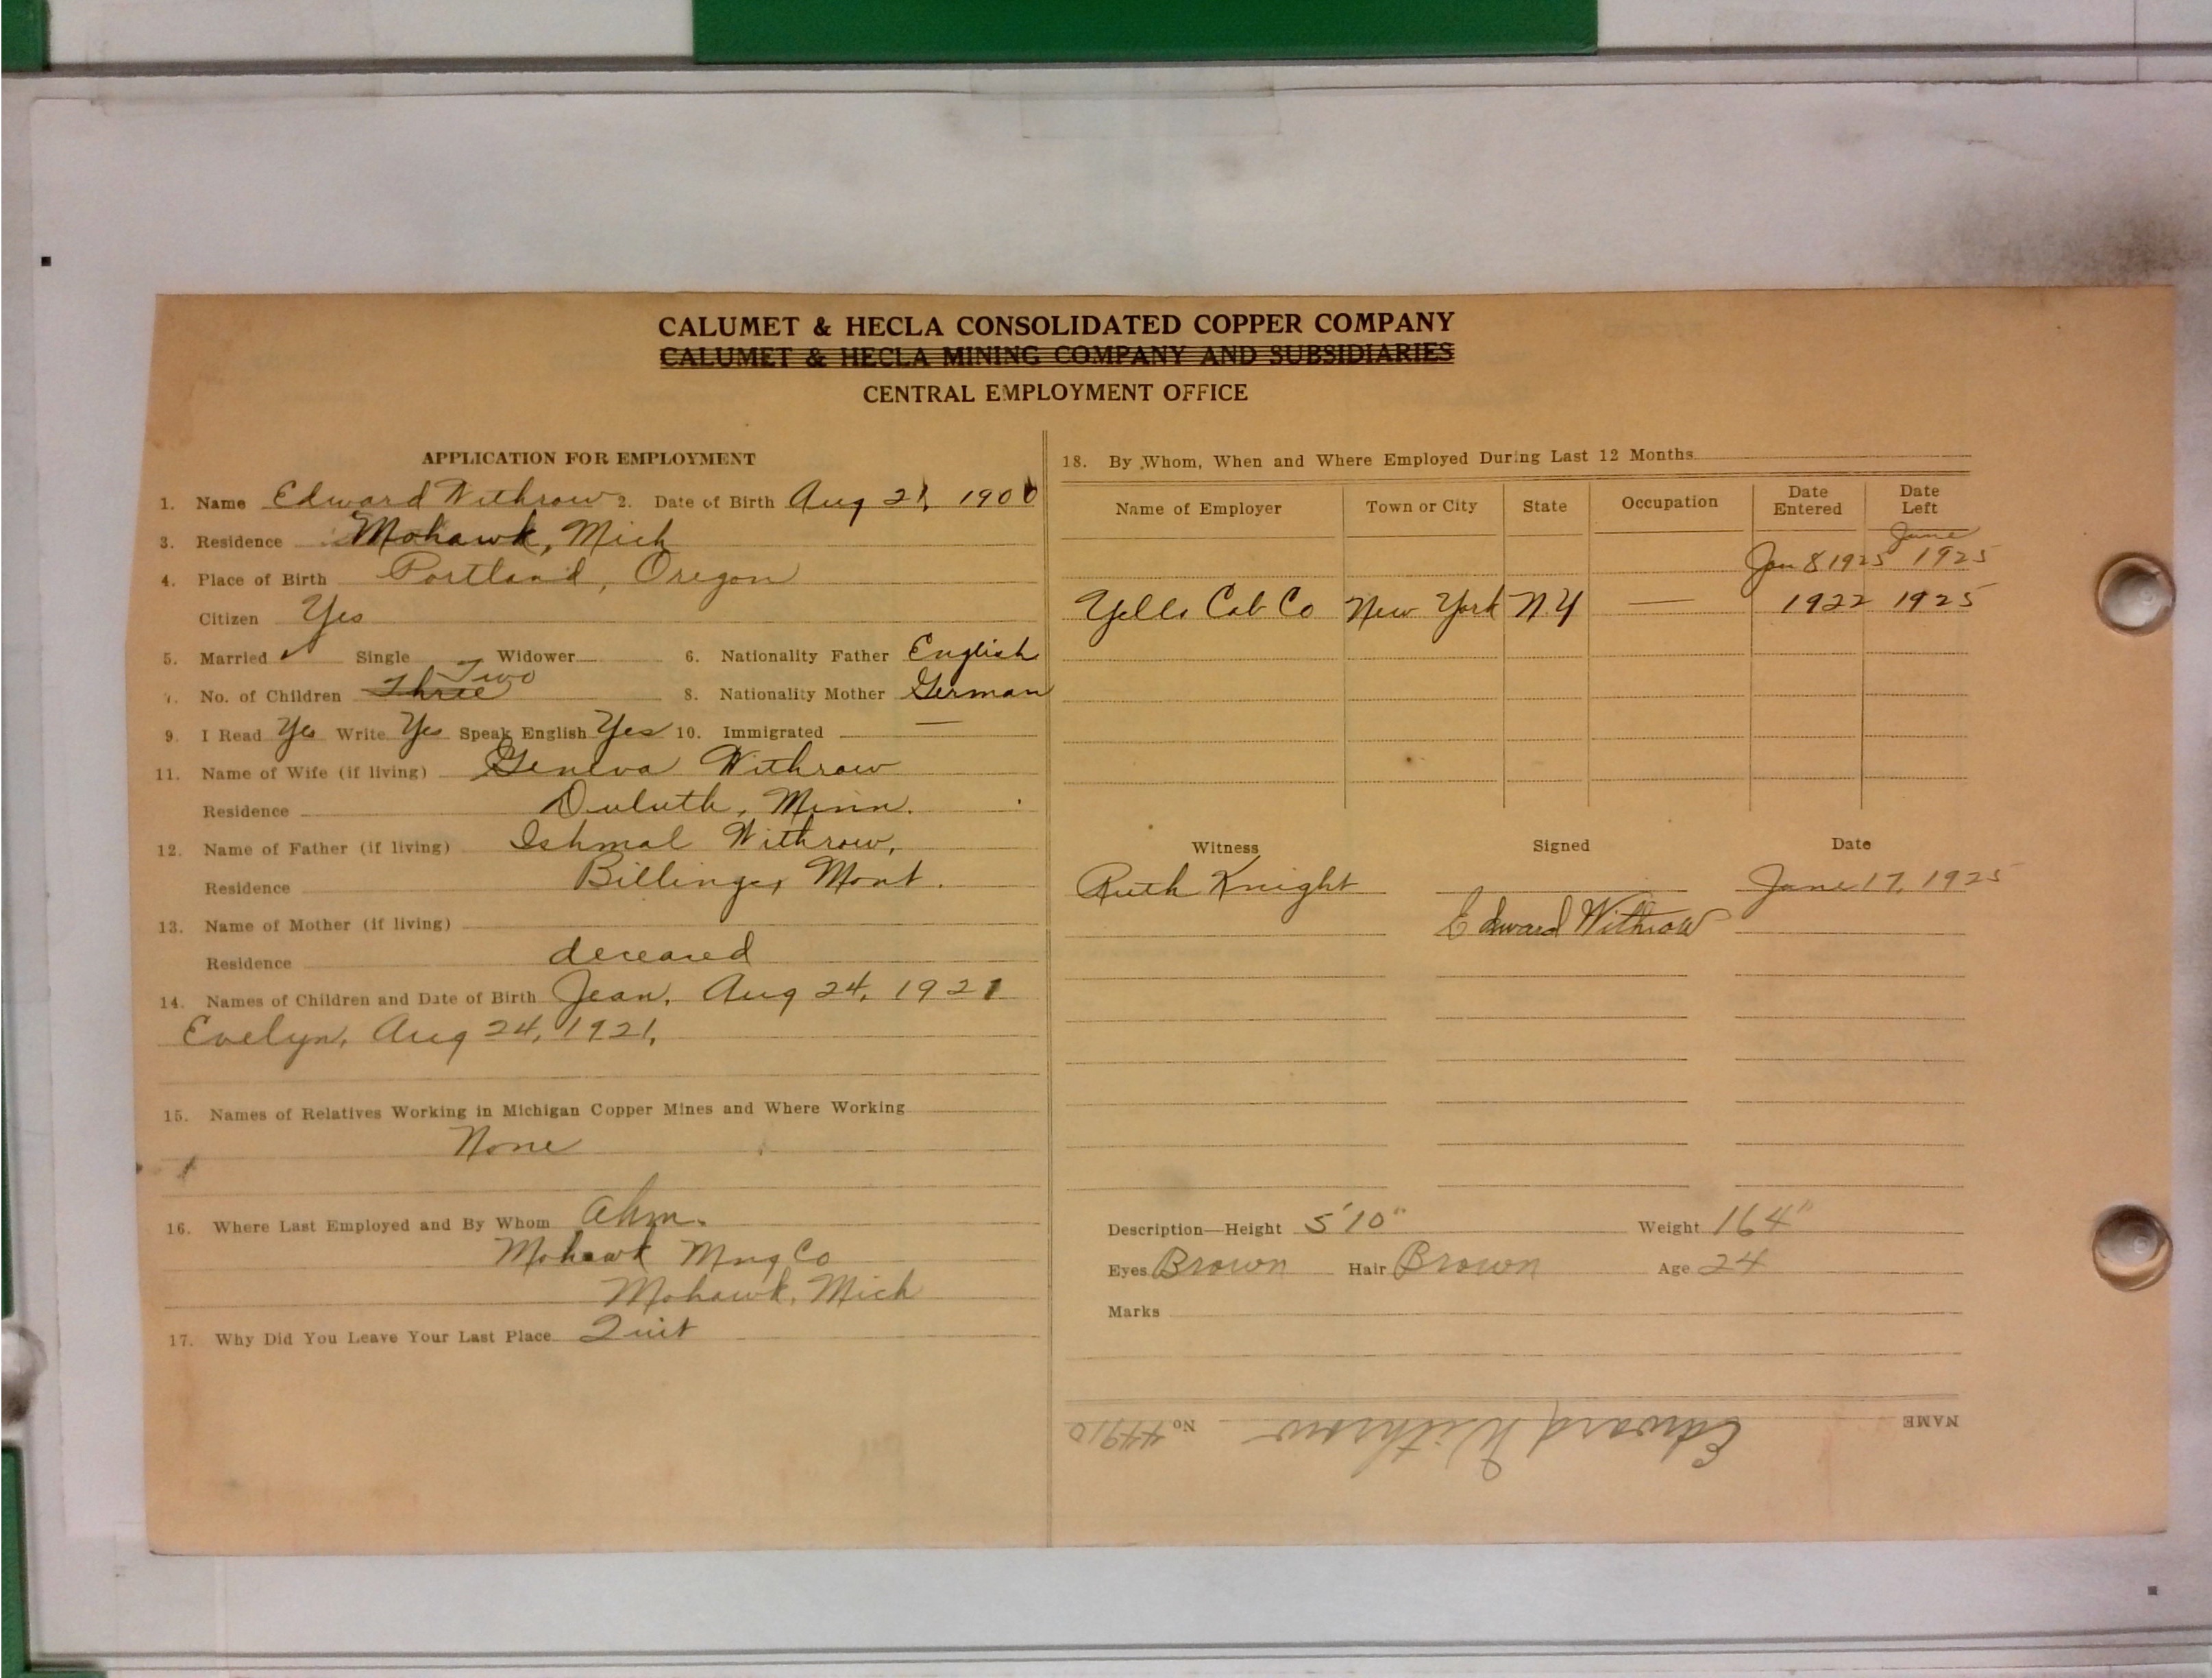 CALUMET & HECLA CONSOLIDATED COPPER COMPANY
CALUMET & HECLA MINING COMPANY AND SUBSIDIARIES
CENTRAL EMPLOYMENT OFFICE
APPLICATION FOR EMPLOYMENT
1. Name Edward Withrow 2. Date of Birth Aug 21, 1900
3. Residence Mohawk, Mich
4. Place of Birth Portland, Oregon
Citizen Yes
5. Married ✓ Single Widower 6. Nationality Father English
Two
7. No. of Children Three 8. Nationality Mother German
9. I Read Yes Write Yes Speak English Yes 10. Immigrated —
11. Name of Wife (if living) Geneva Withrow
Residence Duluth, Minn.
12. Name of Father (if living) Ishmal Withrow,
Residence Billings, Mont.
13. Name of Mother (if living)
Residence deceased
14. Names of Children and Date of Birth Jean, Aug 24, 1921
Evelyn, Aug 24, 1921,
15. Names of Relatives Working in Michigan Copper Mines and Where Working
None
16. Where Last Employed and By Whom Ahm.
Mohawk Mng Co
Mohawk, Mich
17. Why Did You Leave Your Last Place Quit
18. By Whom, When and Where Employed During Last 12 Months
Name of Employer Town or City State Occupation Date Entered Date Left
June
Jan 8 1925 1925
Yello Cab Co New York N.Y — 1922 1925
Witness Signed Date
Ruth Knight June 17, 1925
Edward Withrow
Description—Height 5'10" Weight 164"
Eyes Brown Hair Brown Age 24
Marks
NAME Edward Withrow No. 44910